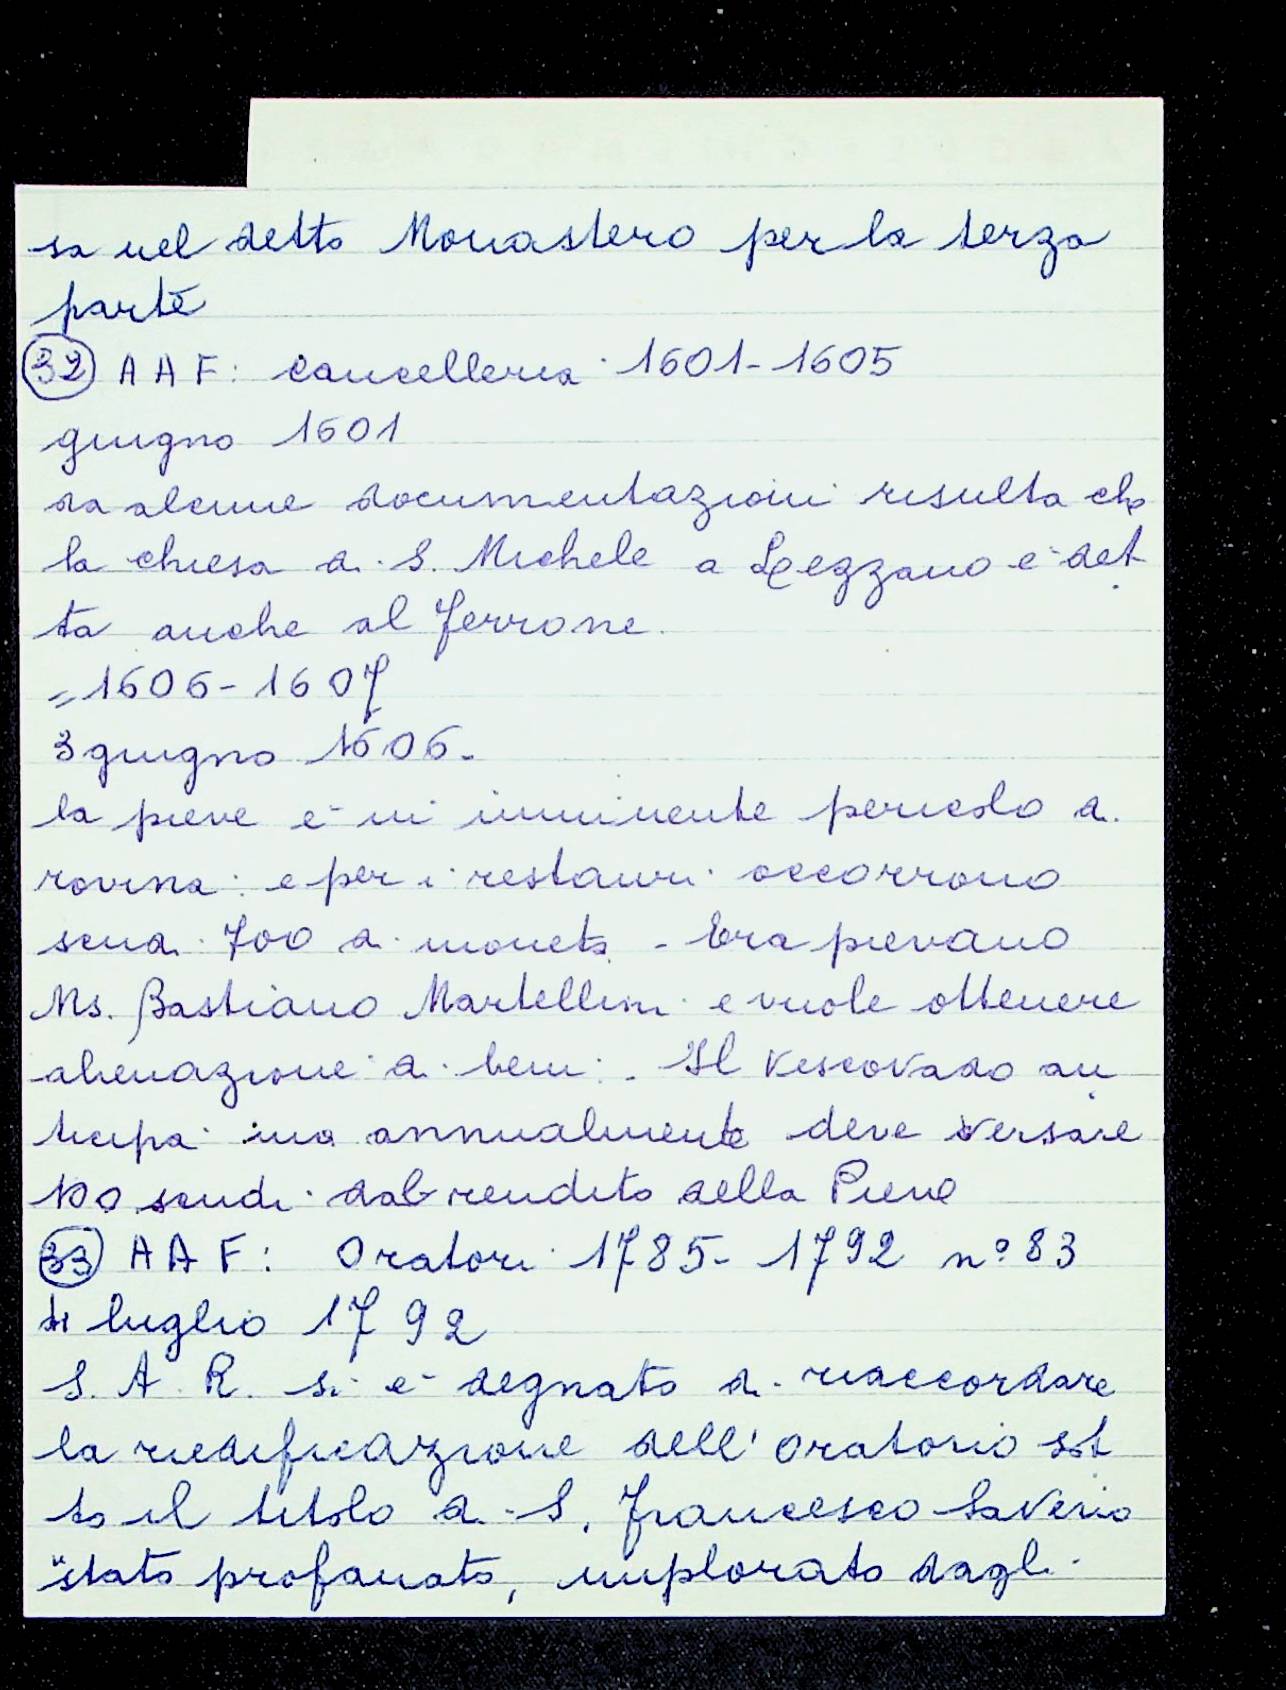 sa nel detto Monastero per la terza
parte
32 AAF: Cancelleria 1601-1605
giugno 1601
da alcune documentazioni risulta che
la chiesa di S. Michele a Lezzano è det
ta anche al Ferrone.
= 1606-1607
3 giugno 1606.
la pieve è in imminente pericolo di
rovina e per i restauri occorrono
scudi 700 di moneta - Era pievano
Ms. Bastiano Martellini e vuole ottenere
alienazione di beni. Il Vescovado an
ticipa ma annualmente deve versare
100 scudi dal rendito della Pieve
33 AAF: Oratori 1785-1792 n° 83
luglio 1792
S. A. R. si è degnato di riaccordare
la riedificazione dell'oratorio sot
to il titolo di S. Francesco Saverio
stato profanato, implorato dagli